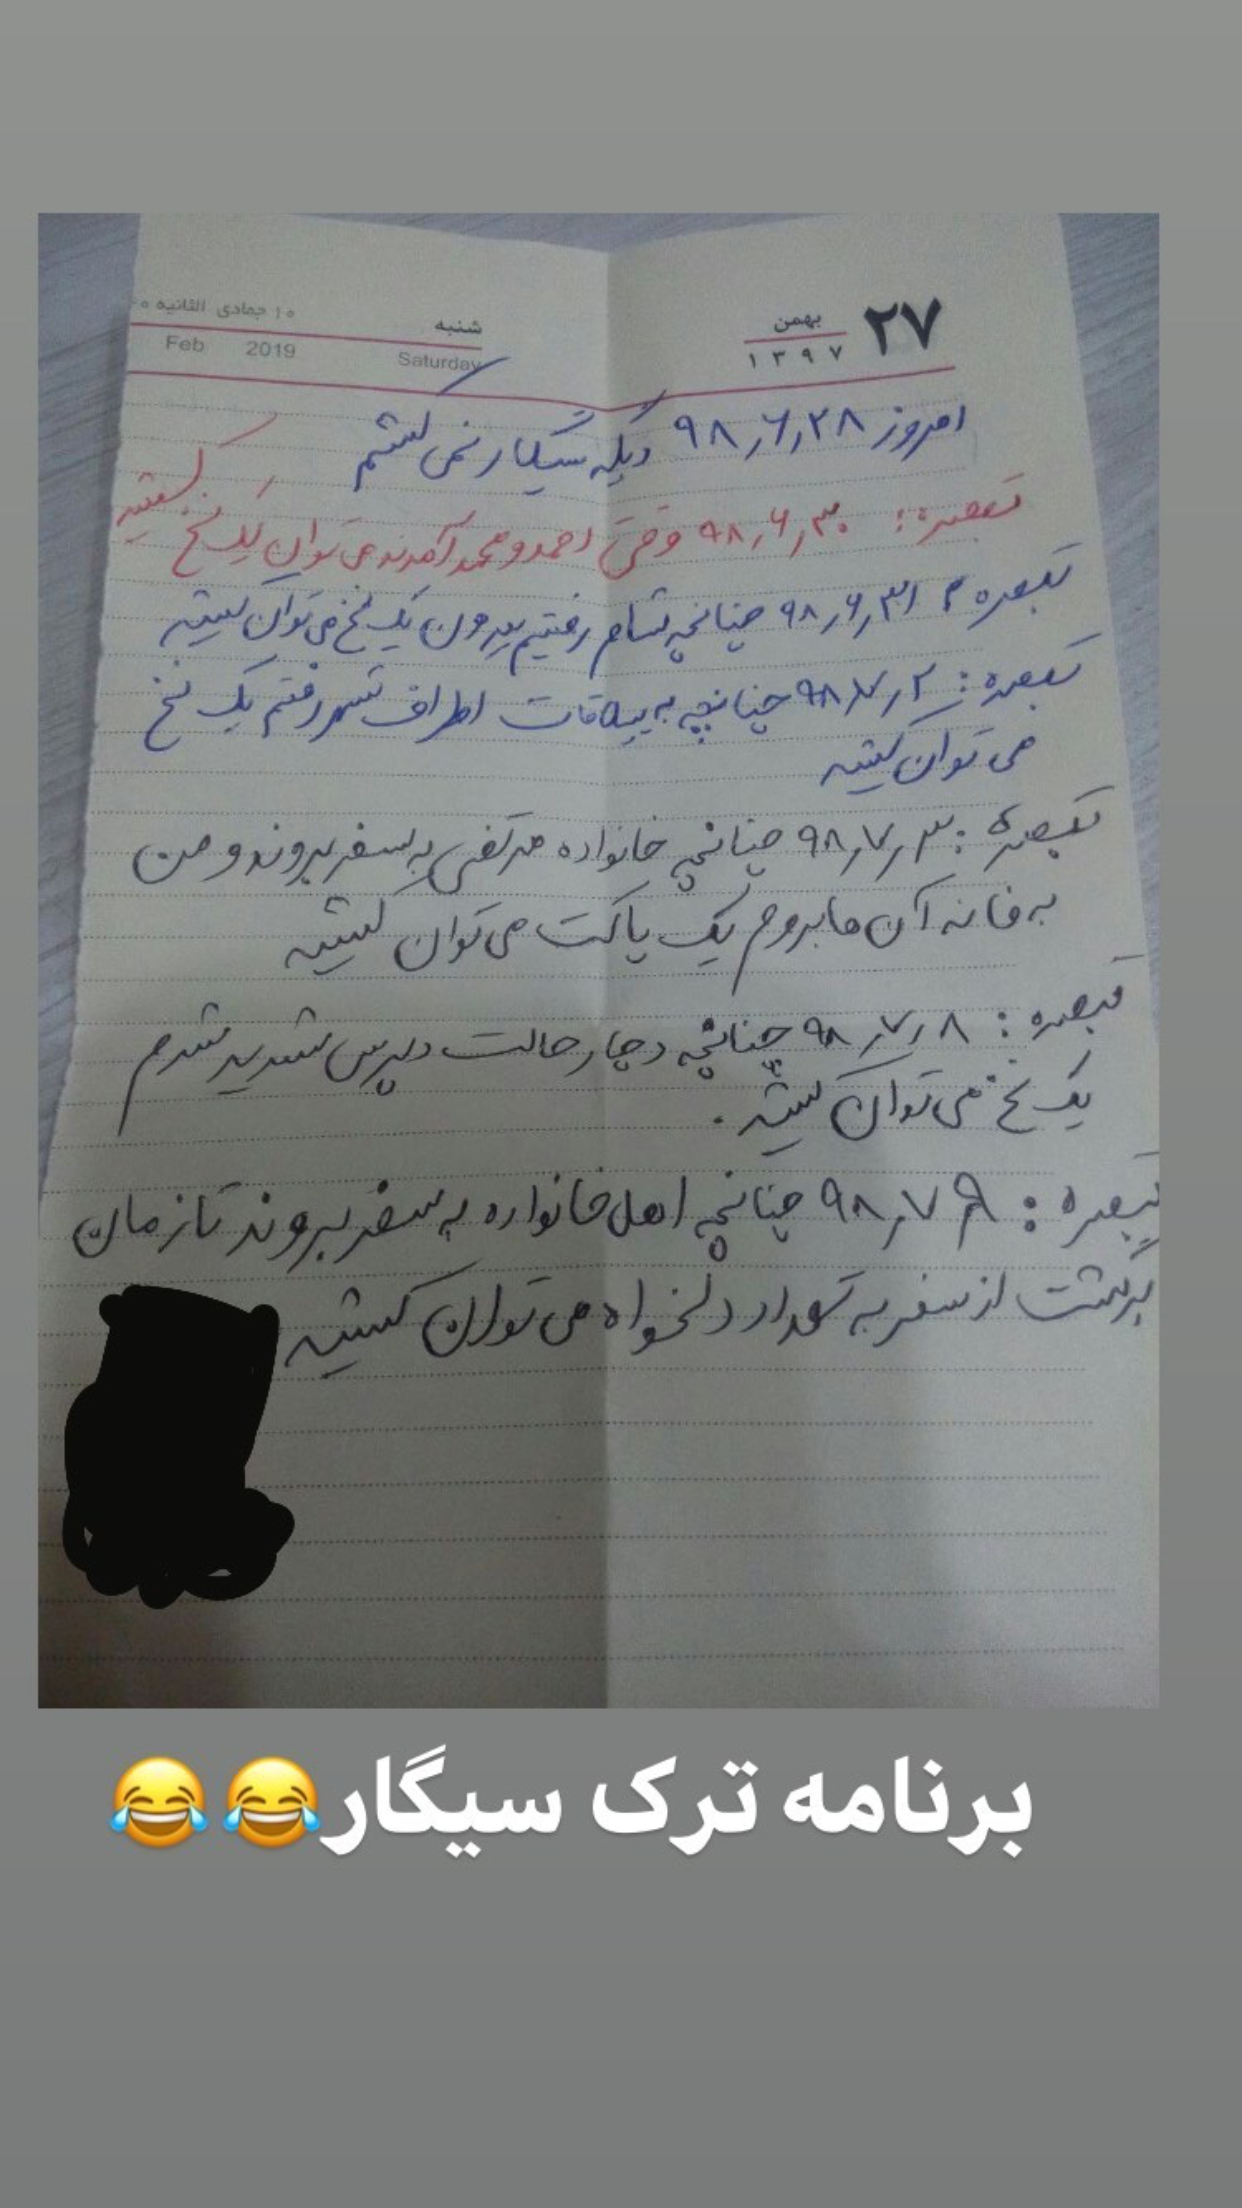 ۲۷
بهمن
۱۳۹۷
شنبه
Saturday
۱۰ جمادی الثانیه
Feb 2019
امروز ۹۸٫۶٫۲۸ دیگه سیگار نمی کشم
تبصره: ۹۸٫۶٫۳۰ وقتی احمد و محمد آمدند می توان یک نخ کشید
تبصره ۲ ۹۸٫۶٫۳۱ چنانچه شام رفتیم بیرون یک نخ می توان کشید
تبصره: ۹۸٫۷٫۲ چنانچه به ییلاقات اطراف شهر رفتم یک نخ
می توان کشید
تبصره: ۹۸٫۷٫۳ چنانچه خانواده مرتضی به سفر بروند و من
به خانه آن ها بروم یک پاکت می توان کشید
تبصره: ۹۸٫۷٫۸ چنانچه دچار حالت دپرس شدید شدم
یک نخ می توان کشید.
تبصره: ۹۸٫۷٫۹ چنانچه اهل خانواده به سفر بروند تا زمان
برگشت از سفر به تعداد دلخواه می توان کشید
برنامه ترک سیگار😂😂